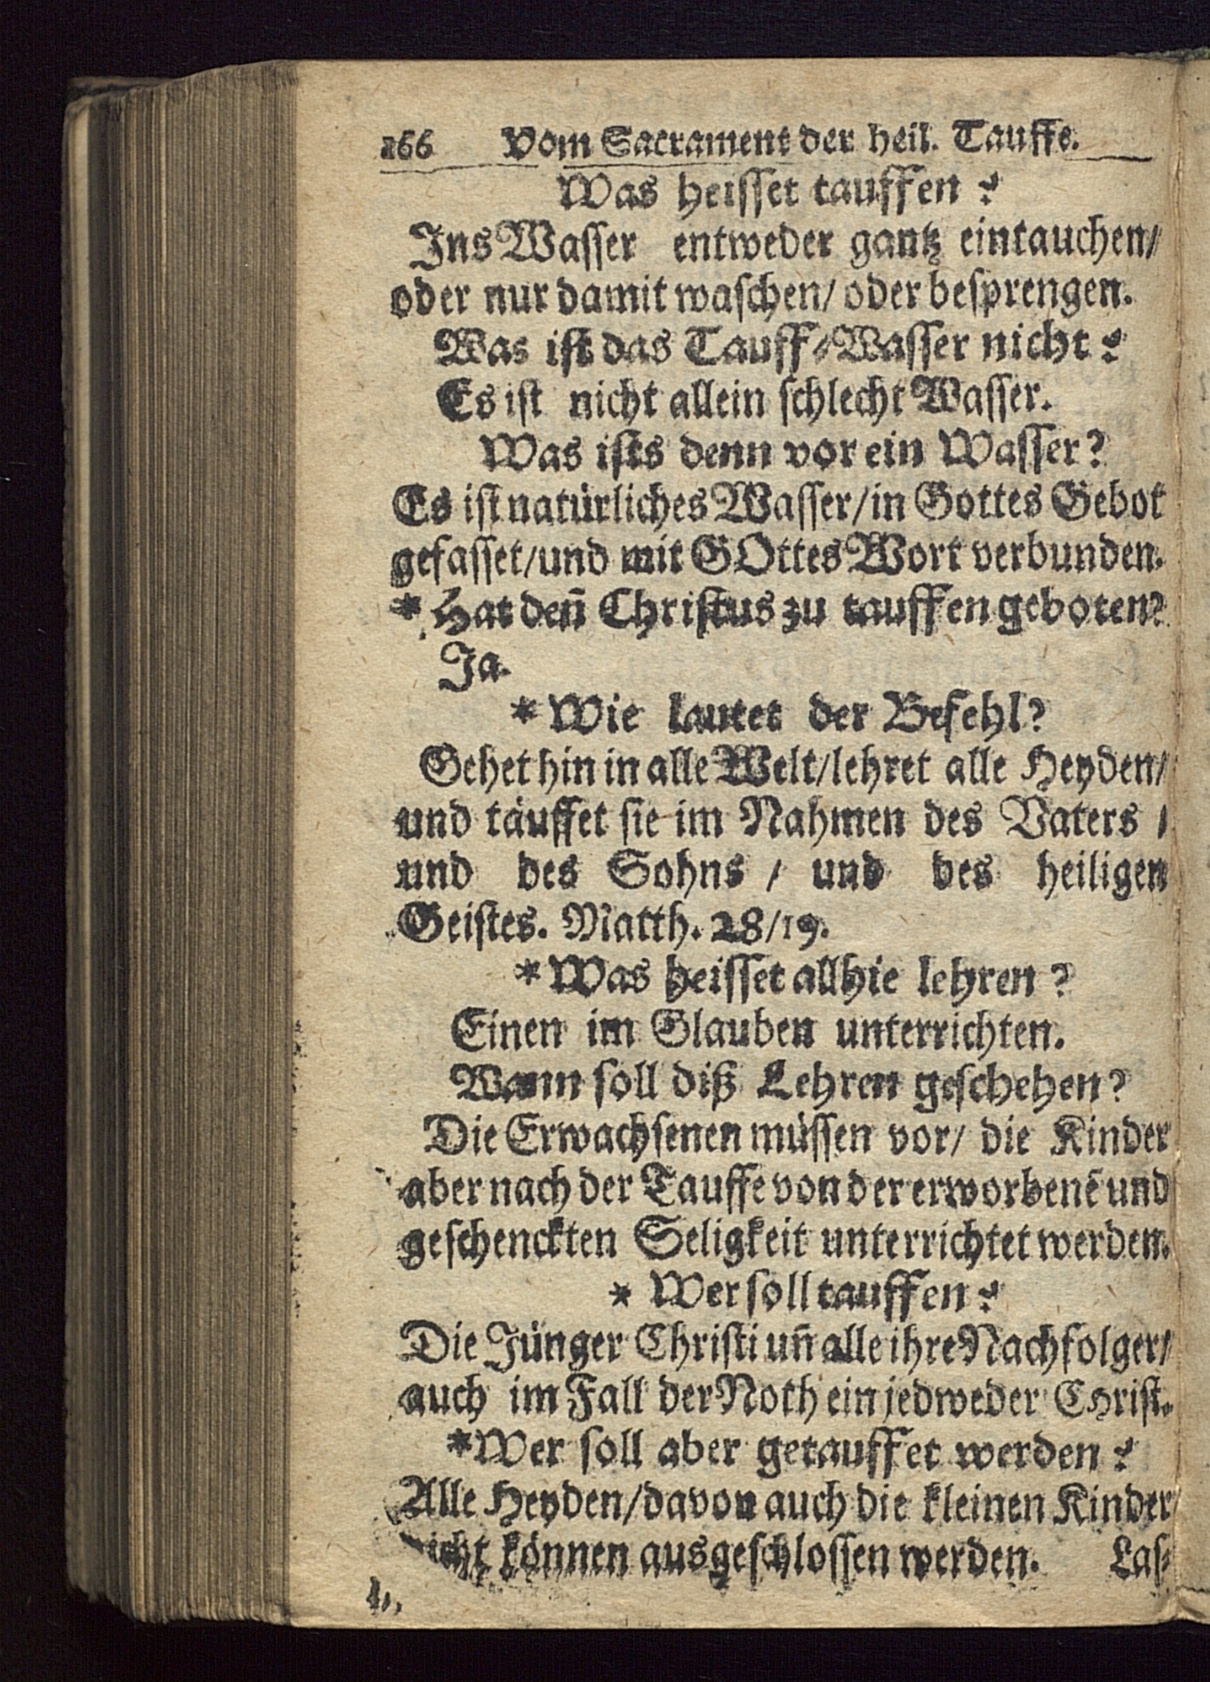 166 Vom Sacrament der heil. Tauffe.
Was heisset tauffen?
Ins Wasser entweder gantz eintauchen/
oder nur damit waschen/ oder besprengen.
Was ist das Tauff-Wasser nicht?
Es ist nicht allein schlecht Wasser.
Was ists denn vor ein Wasser?
Es ist natürliches Wasser/ in Gottes Gebot
gefasset/ und mit GOttes Wort verbunden.
* Hat deñ Christus zu tauffen geboten?
Ja.
* Wie lautet der Befehl?
Gehet hin in alle Welt/ lehret alle Heyden/
und täuffet sie im Nahmen des Vaters /
und des Sohns / und des heiligen
Geistes. Matth. 28/19.
* Was heisset allhie lehren?
Einen im Glauben unterrichten.
Wann soll diß Lehren geschehen?
Die Erwachsenen müssen vor/ die Kinder
aber nach der Tauffe von der erworbenē und
geschenckten Seligkeit unterrichtet werden.
* Wer soll tauffen?
Die Jünger Christi uñ alle ihre Nachfolger/
auch im Fall der Noth ein jedweder CHrist.
* Wer soll aber getauffet werden?
Alle Heyden/ davon auch die kleinen Kinder
nicht können ausgeschlossen werden. Las-